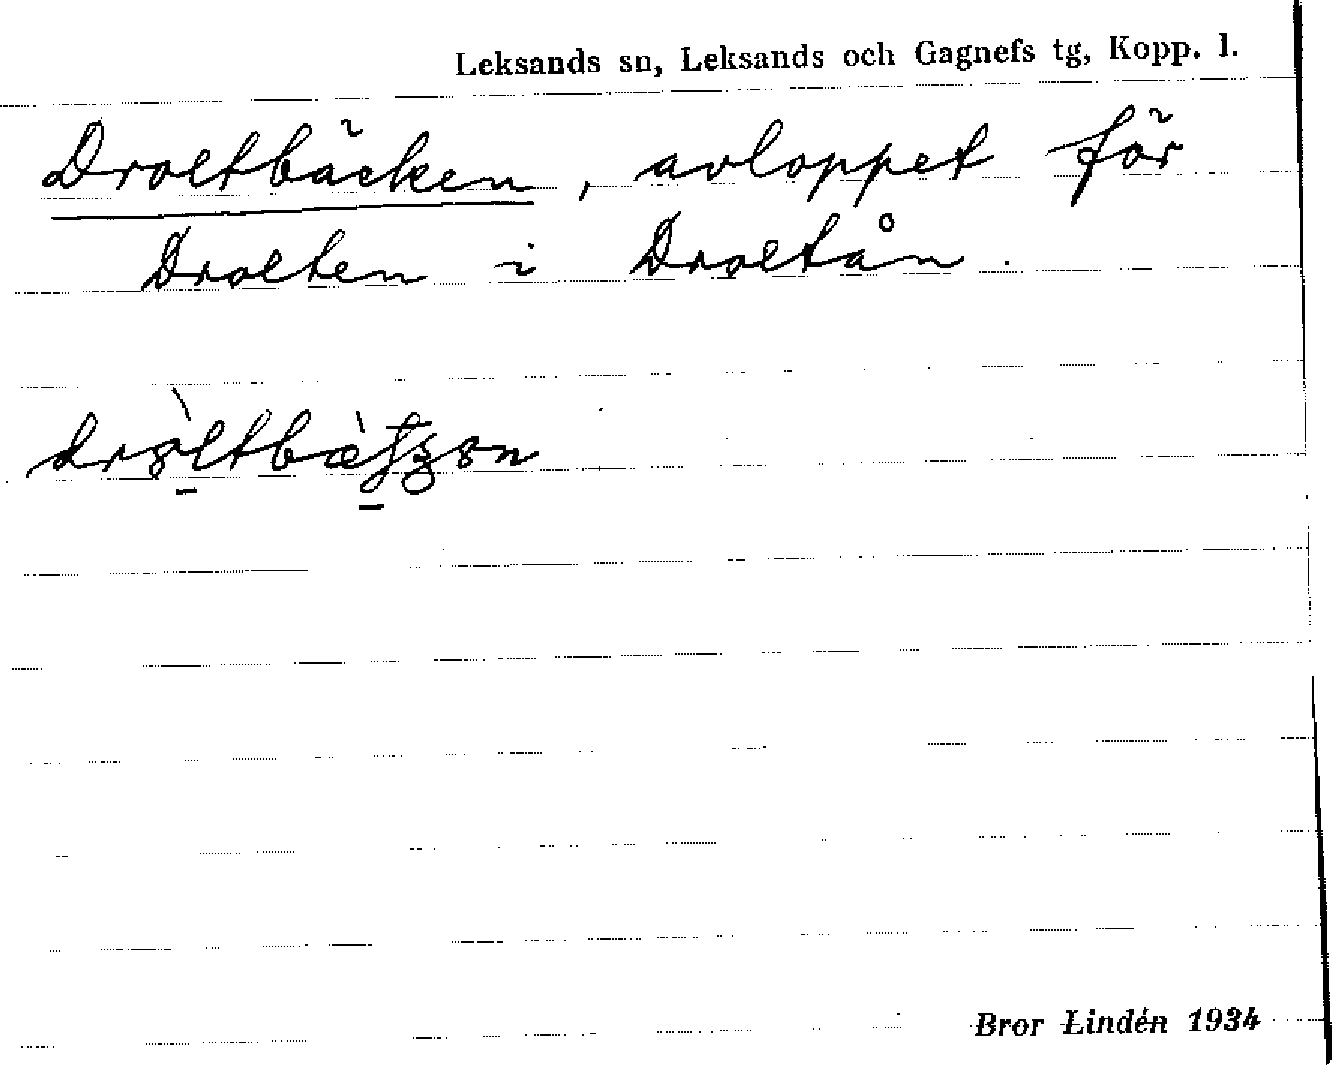 Leksands sn, Leksands och Gagnefs tg, Kopp. l.
Droltbäcken, avloppet för
Drolten i Droltån.
Bror Lindén 1934